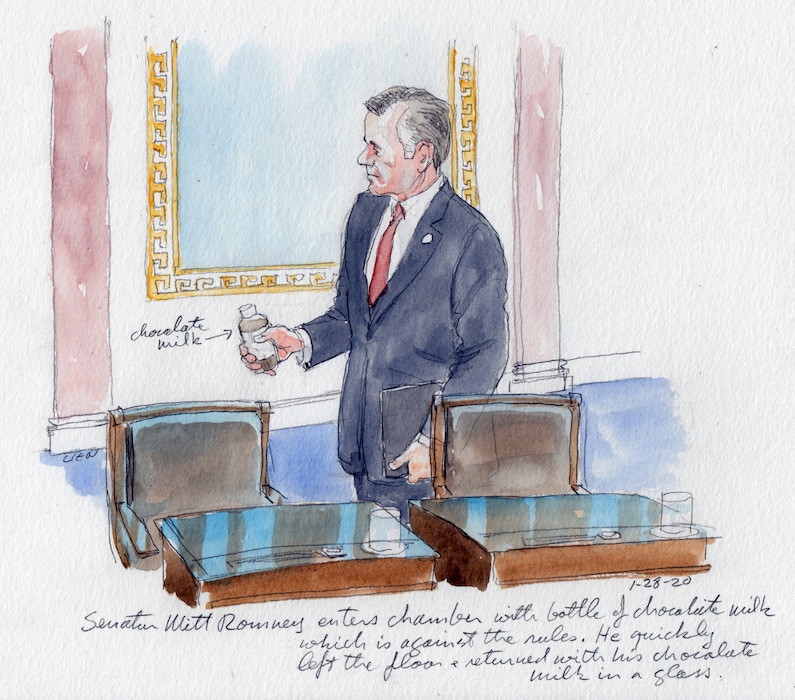 chocolate
milk →
LIEN
1-28-20
Senator Mitt Romney enters chamber with bottle of chocolate milk
which is against the rules. He quickly
left the floor & returned with his chocolate
milk in a glass.